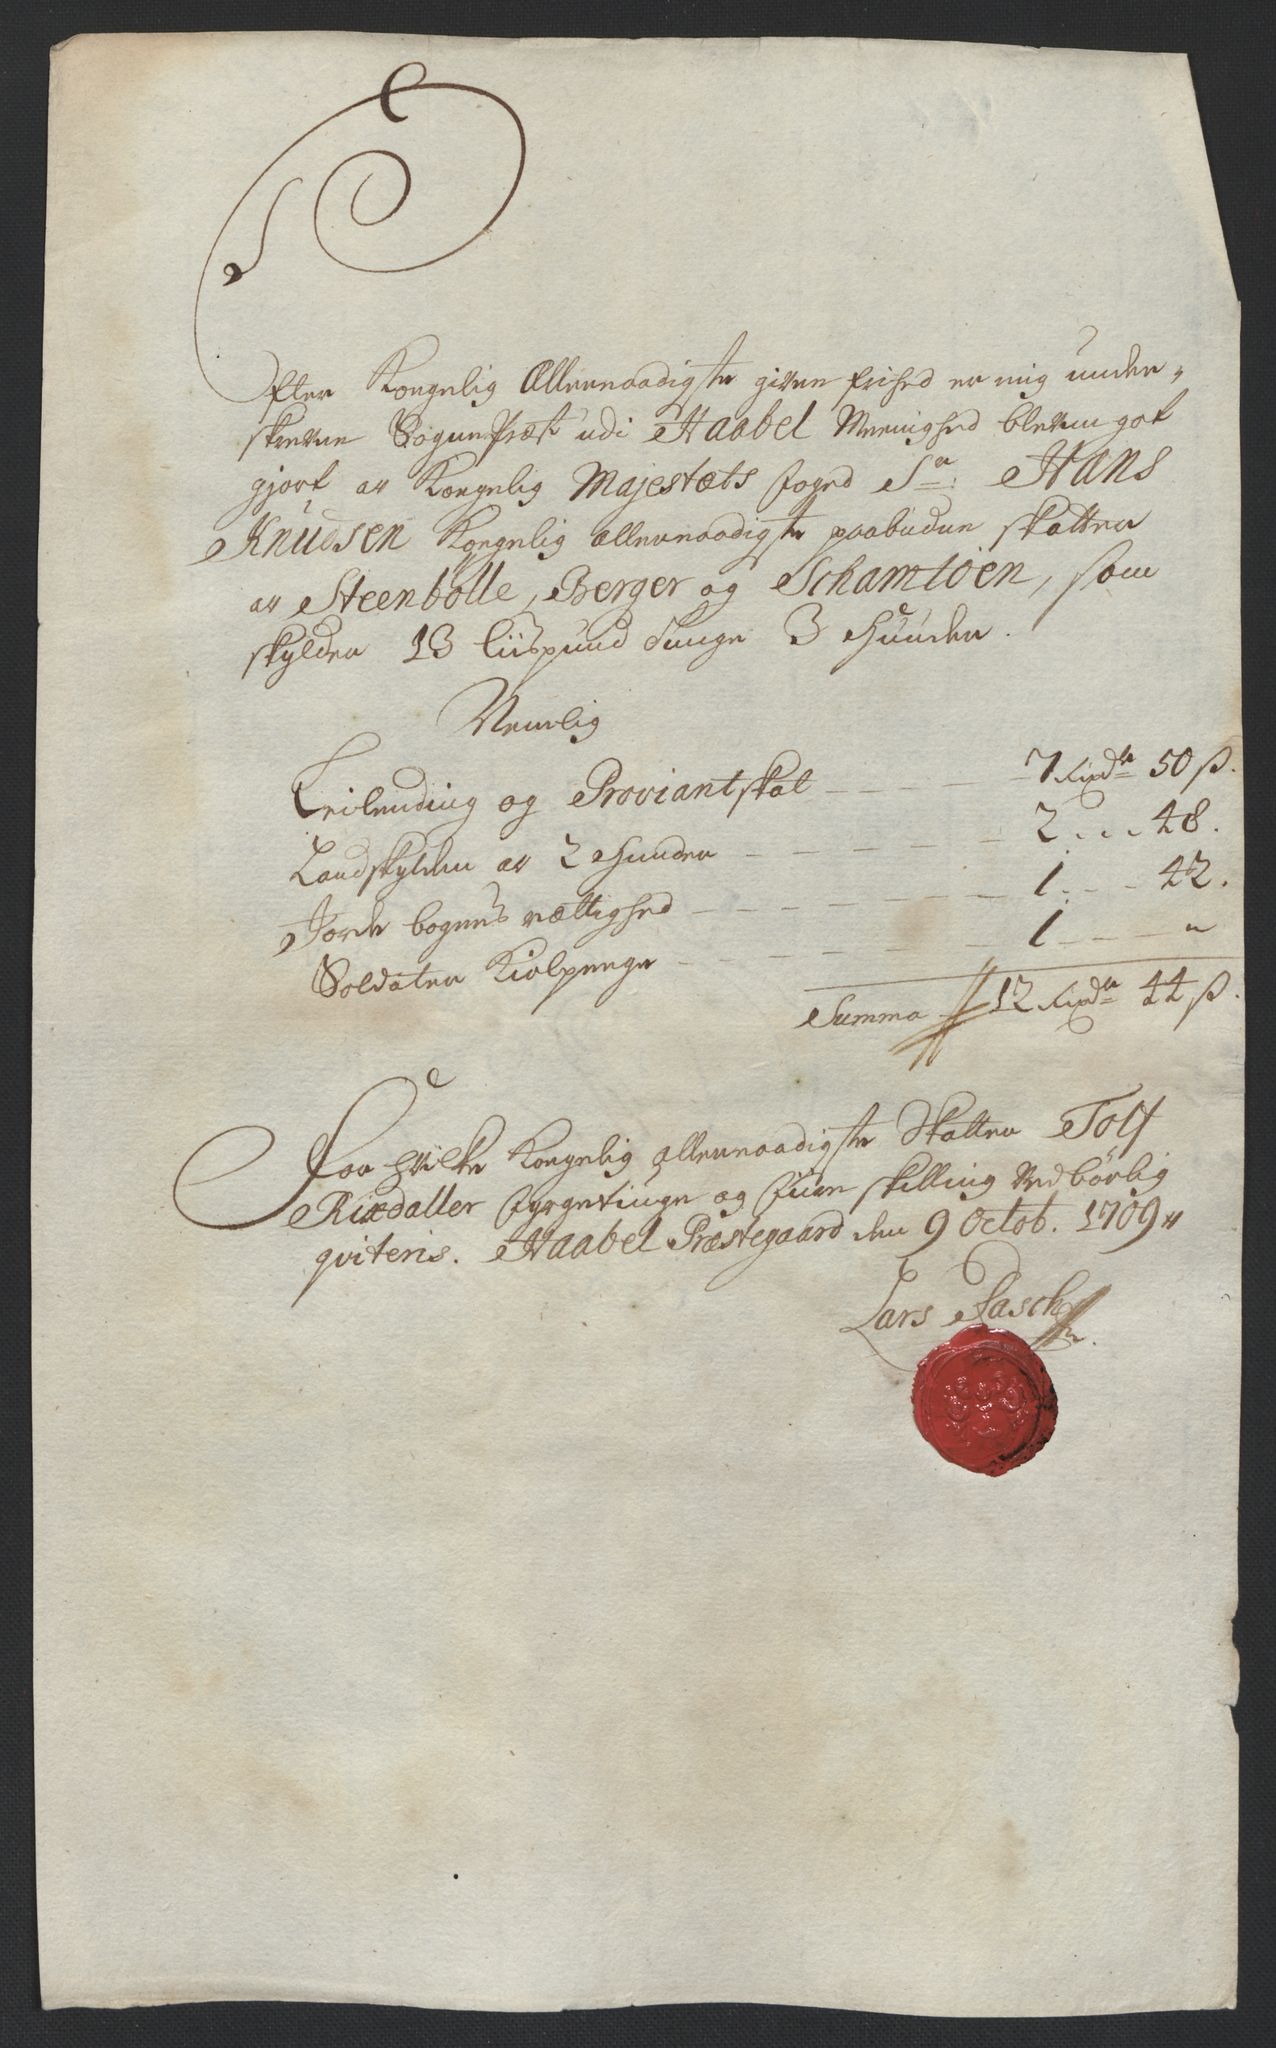 Efter Kongelig Allernaadigste given frihed er mig under-
skrevne SognePræst udi Haabel Meenighed bleven got
gjort av Kongelig Majestæts foged Sr: Hans
Knudsen Kongelig allernaadigste paabudne skatter
av Steenbolle, Berger og Schamloen, som
skylder 13 liispund Tunge 3 Huuder.
Nemlig
Leilending og Proviantskat - - - - 7 Rixdlr 50 ß.
Landskylden av 2 Huuder - - - - 2 . . . 48.
Jorde bogens rettighed - - - - 1 . - - 42.
Soldater Kiolpenge - - - - 1 - - - "
Summa 12 Rixdlr 44 ß.
Foor hvilke Kongelig allernaadigste skatter Tolf
Rixdaller fyrgetiuge og fiire skilling Vedbörlig
qviteris. Haabel Præstegaard den 9 Octob. 1709
Lars Pasch